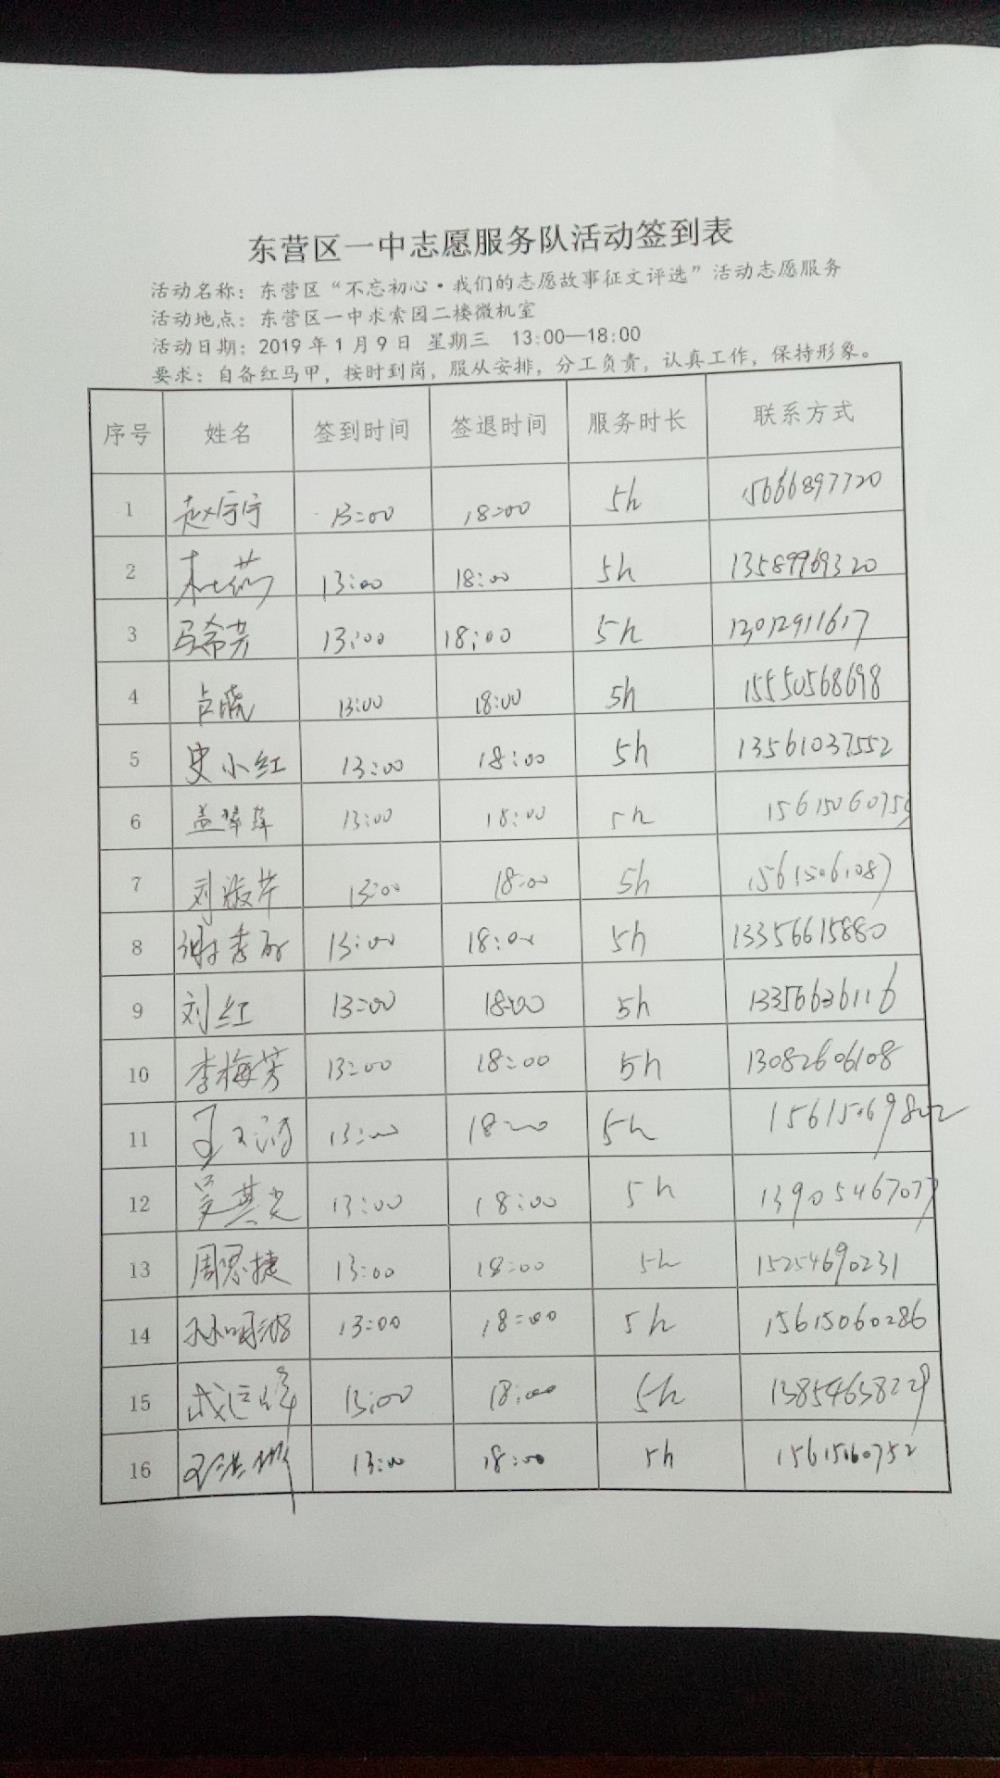 东营区一中志愿服务队活动签到表
活动名称：东营区“不忘初心·我们的志愿故事征文评选”活动志愿服务
活动地点：东营区一中求索园二楼微机室
活动日期：2019年1月9日 星期三 13:00—18:00
要求：自备红马甲，按时到岗，服从安排，分工负责，认真工作，保持形象。
序号 姓名 签到时间 签退时间 服务时长 联系方式
1 13:00 18:00 5h 15666897720
2 杜莉 13:00 18:00 5h 13589969320
3 马希芳 13:00 18:00 5h 13012911617
4 卢晓 13:00 18:00 5h 15550568698
5 史小红 13:00 18:00 5h 13561037552
6 盖翠萍 13:00 18:00 5h
7 刘淑芹 13:00 18:00 5h 15615061087
8 13:00 18:00 5h 13356615880
9 刘红 13:00 18:00 5h 13356636116
10 李梅芳 13:00 18:00 5h 13082606108
11 13:00 18:00 5h
12 吴其光 13:00 18:00 5h 13905467077
13 周恩捷 13:00 18:00 5h 15254690231
14 13:00 18:00 5h 15615060286
15 13:00 18:00 5h 13854638229
16 13:00 18:00 5h 15615060752